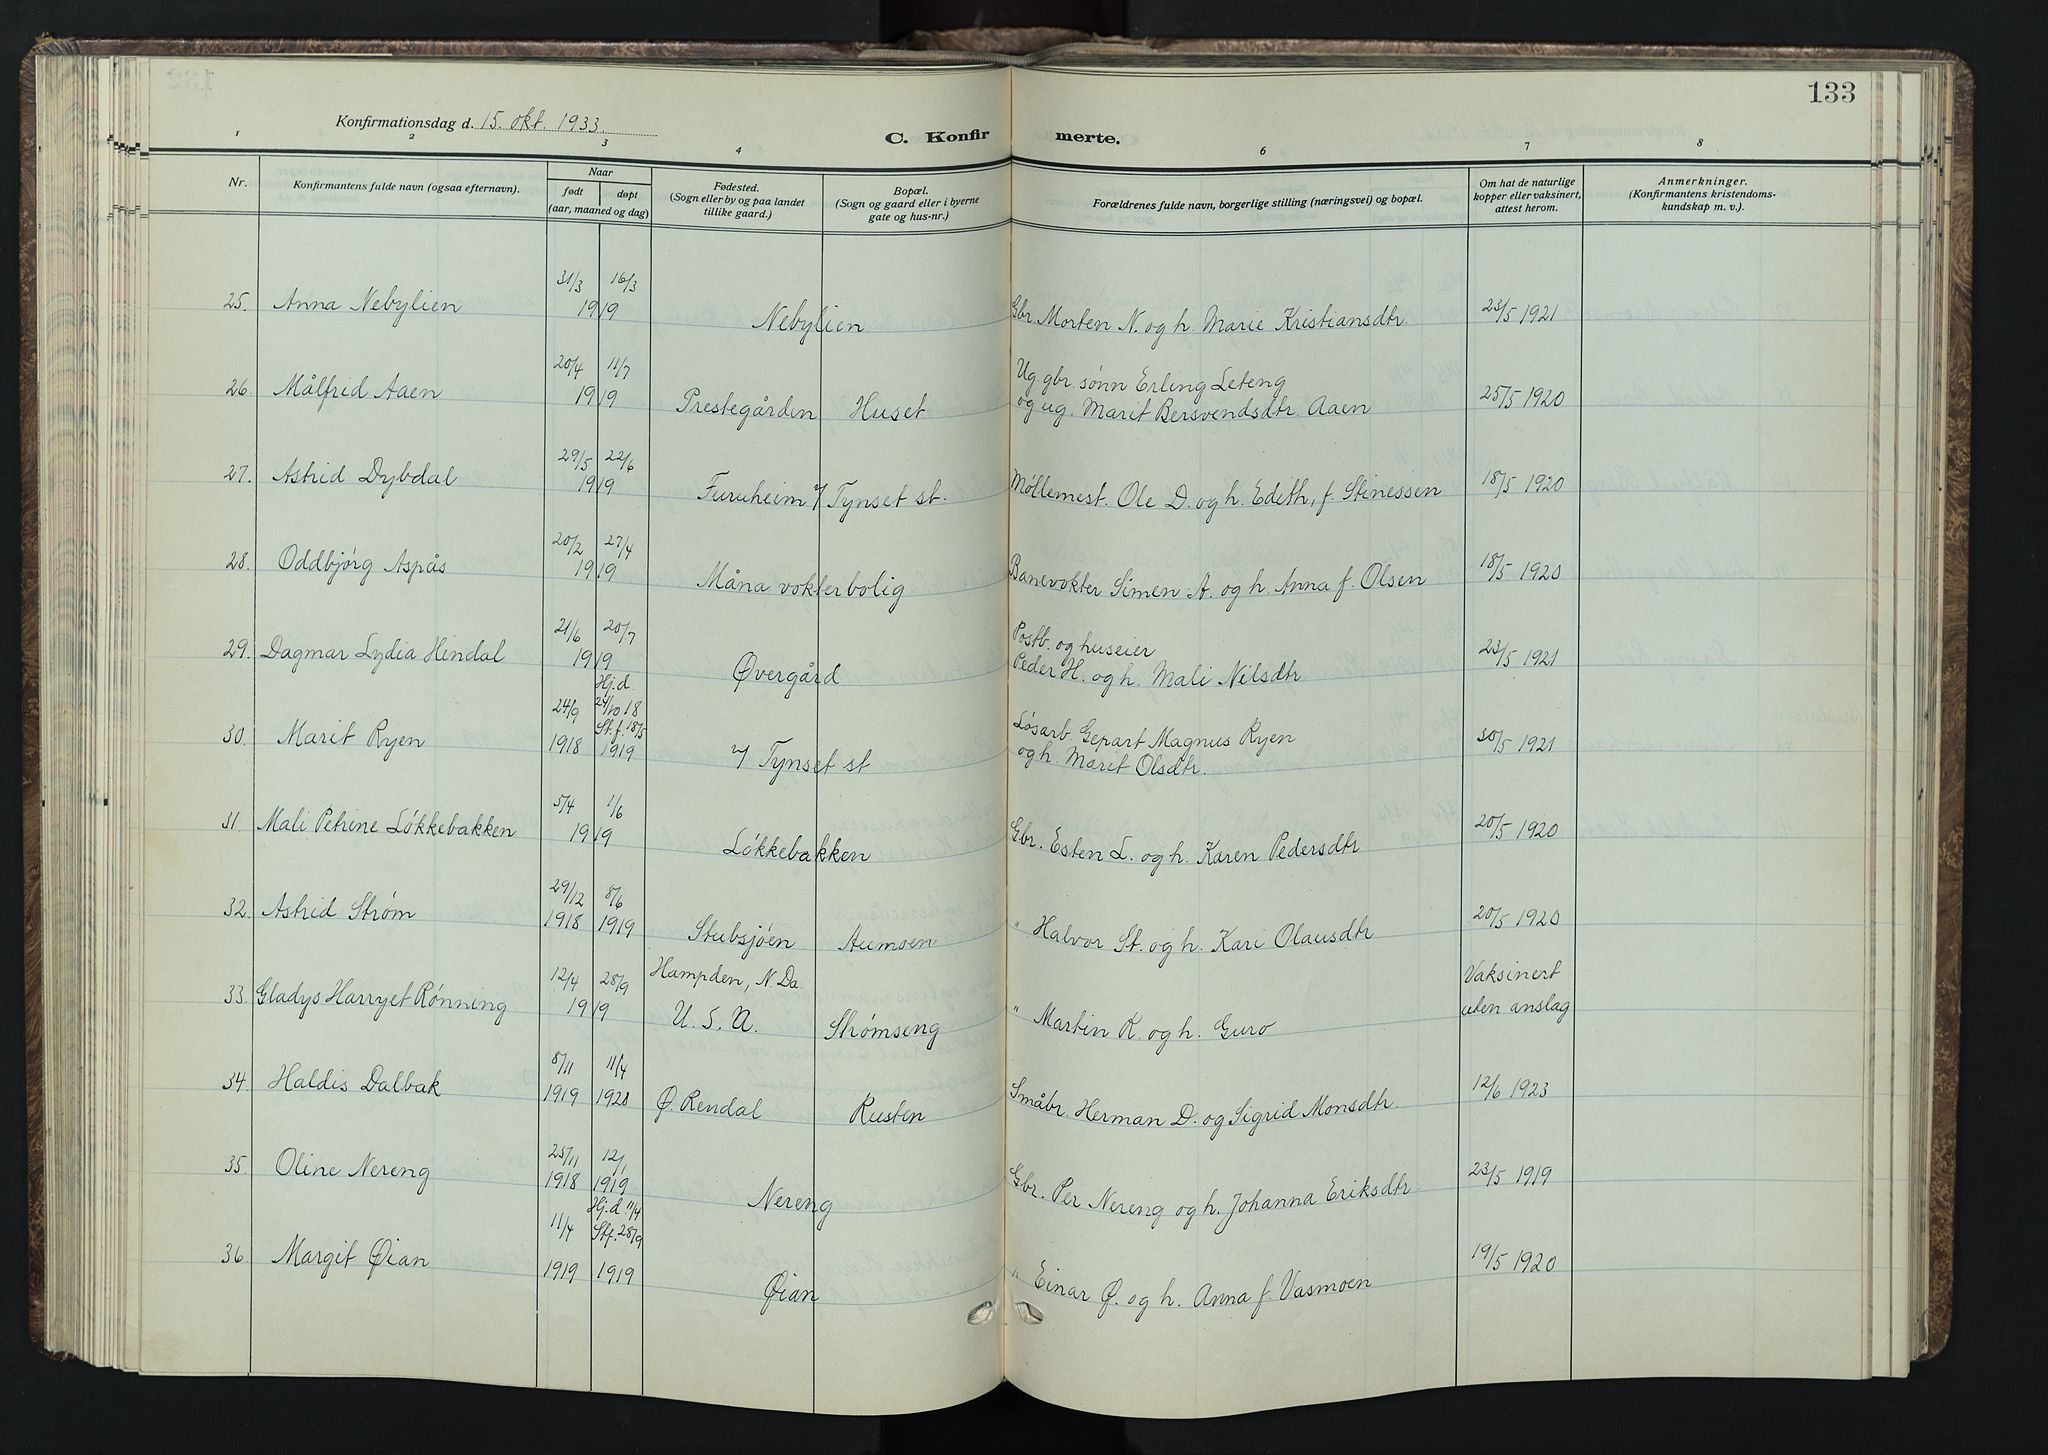 133
Konfirmationsdag d. 15. okt. 1933.
C. Konfirmerte.
1 2 3 4 6 7 8
Nr.
Konfirmantens fulde navn (ogsaa efternavn).
Naar
født døpt
(aar, maaned og dag)
Fødested.
(Sogn eller by og paa landet
tillike gaard.)
Bopæl.
(Sogn og gaard eller i byerne
gate og hus-nr.)
Forældrenes fulde navn, borgerlige stilling (næringsvei) og bopæl.
Om hat de naturlige
kopper eller vaksinert,
attest herom.
Anmerkninger.
(Konfirmantens kristendoms-
kundskap m. v.).
31/3 16/3
25. Anna Nebylien 1919 Nebylien Gbr. Morten N. og h. Marie Kristiansdtr. 23/5 1921
20/4 11/7 Ug. gbr. sønn Erling Leteng
26. Målfrid Aaen 1919 Prestegården Huset og ug. Marit Bersvendsdtr. Aaen 25/5 1920
29/5 22/6
27. Astrid Dybdal 1919 Furuheim v/ Tynset st. Møllemest. Ole D. og h. Edith, f. Stinessen 18/5 1920
20/2 27/4
28. Oddbjørg Aspås 1919 Måna vokterbolig Banevokter Simen A. og h. Anna f. Olsen 18/5 1920
21/6 20/7 Postb. og huseier
29. Dagmar Lydia Hindal 1919 Øvergård Peder H. og h. Mali Nilsdtr 23/5 1921
Hj.d.
24/9 24/10 18
St. f. 18/5 Løsarb. Gepart Magnus Ryen
30. Marit Ryen 1918 1919 v/ Tynset st og h. Marit Olsdtr. 30/5 1921
5/4 1/6
31 Mali Petrine Løkkebakken 1919 Løkkebakken Gbr. Esten L. og h. Karen Pedersdtr 20/5 1920
29/12 8/6
32. Astrid Strøm 1918 1919 Stubsjøen Aumoen " Halvor St. og h. Kari Olausdtr 20/5 1920
12/4 28/9 Hampden, N. Da. Vaksinert
33. Gladys Harryet Rønning 1919 U. S. A. Strømseng " Martin R. og h. Guro uten anslag
8/11 11/4
34. Haldis Dalbak 1919 1920 Ø. Rendal Rusten Småbr. Herman D. og Sigrid Monsdtr. 12/6 1923
25/11 12/1
35. Oline Nereng 1918 1919 Nereng Gbr. Per Nereng og h. Johanna Eriksdtr 23/5 1919
Hj.d 11/4
11/4 Stf. 28/9
36. Margit Øian 1919 1919 Øian " Einar Ø. og h. Anna f. Vasmoen 19/5 1920